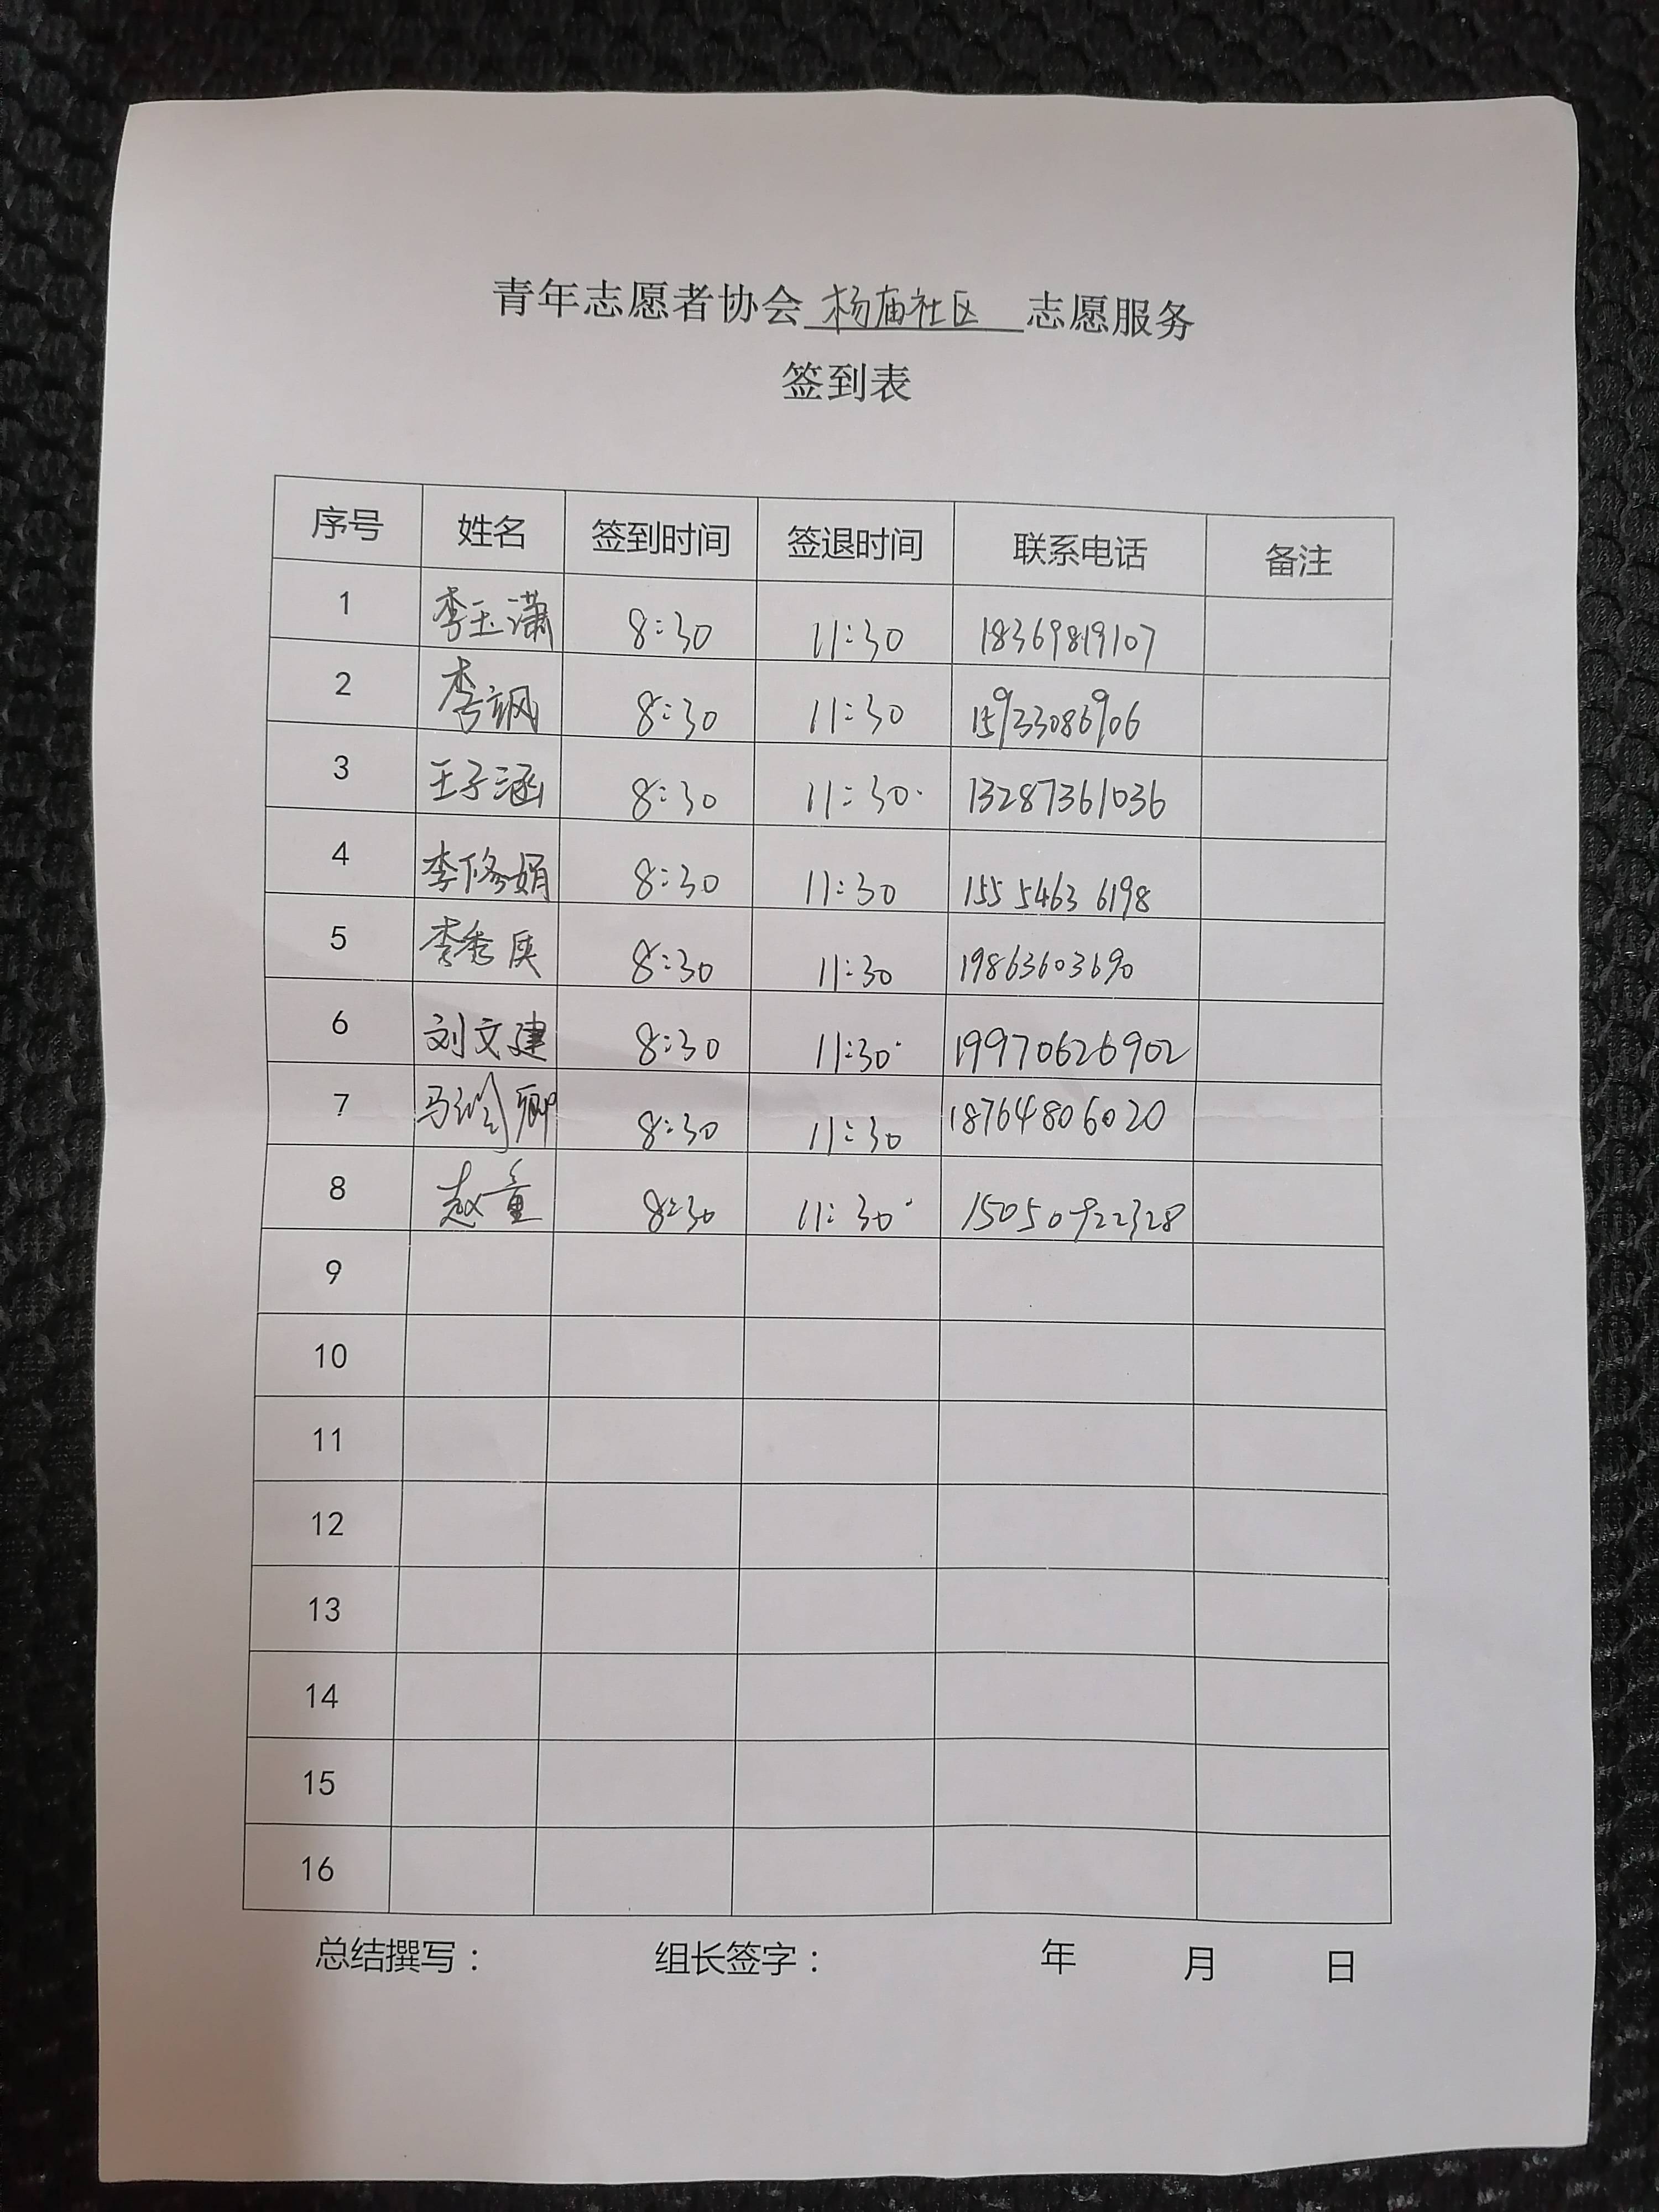 青年志愿者协会 杨庙社区 志愿服务
签到表
序号 姓名 签到时间 签退时间 联系电话 备注
1 李玉潇 8:30 11:30 18369819107
2 李飒 8:30 11:30 15933086906
3 王子涵 8:30 11:30 13287361036
4 李修娟 8:30 11:30 155 5463 6198
5 李秀 8:30 11:30 19863603690
6 刘文建 8:30 11:30 19970626902
7 马 卿 8:30 11:30 18764806020
8 赵童 8:30 11:30 15050922328
9
10
11
12
13
14
15
16
总结撰写： 组长签字： 年 月 日